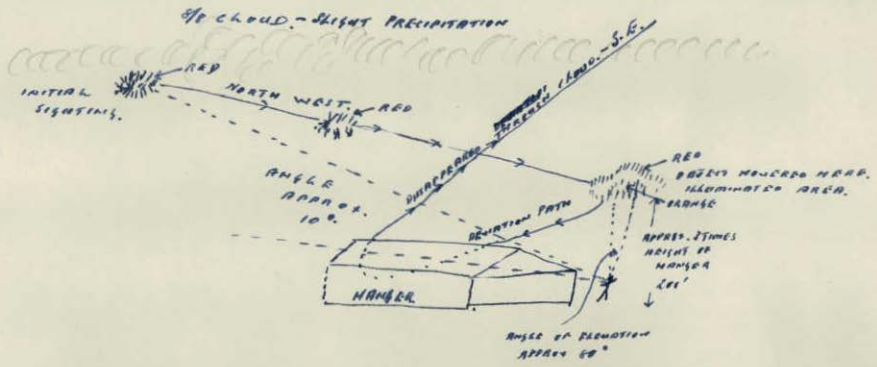 8/8 CLOUD.- SLIGHT PRECIPITATION
RED
INITIAL
SIGHTING.
NORTH WEST.
RED
DISAPPEARED THROUGH CLOUD.-S.E.
ANGLE
APPROX.
10°.
DEVIATION PATH
RED
OBJECT HOVERED HERE.
ILLUMINATED AREA.
ORANGE
APPROX. 2 TIMES
HEIGHT OF
HANGER
200'
HANGER
ANGLE OF ELEVATION
APPROX 60°